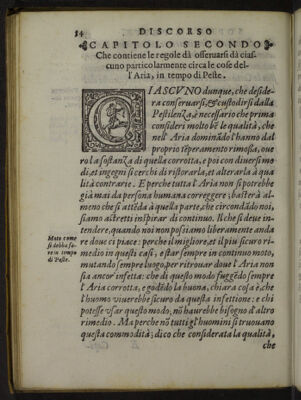 34
DISCORSO
CAPITOLO SECONDO
Che contiene le regole dà osseruarsi dà cias-
cuno particolarmente circa le cose del-
l'Aria, in tempo di Peste.
CIASCVNO dunque, che deside-
ra conseruarsi, & custodirsi dalla
Pestilenza, è necessario che prima
consideri molto bē le qualità, che
nell'Aria dominādo l'hanno dal
proprio tēperamento rimossa, oue
ro la sostanza di quella corrotta, e poi con diuersi mo
di, et ingegni si cerchi di ristorarla, et alterarla à qua
lità contrarie. E perche tutta l'Aria non si potrebbe
già mai da persona humana correggere; bastera al-
meno che si attēda à quella parte, che circondādo noi,
siamo astretti inspirar di continuo. Il che si deue in-
tendere, quando noi non possiamo liberamente anda
re doue ci piace: perche il migliore, et il piu sicuro ri-
medio in questi casi, e star sempre in continuo moto,
mutando sempre luogo, per ritrouar doue l'Aria non
sia ancor' infetta: che di questo modo fuggēdo sempre
l'Aria corrotta, e godēdo la buona, chiara cosa è, che
l'huomo viuerebbe sicuro da questa infettione: e chi
potesse vsar questo modo, nō haurebbe bisogno d'altro
rimedio. Ma perche nō tutti gl'huomini si trouano
questa commodità; dico che considerata la qualità,
che
Moto come
si debba fa-
re in tempo
di Peste.